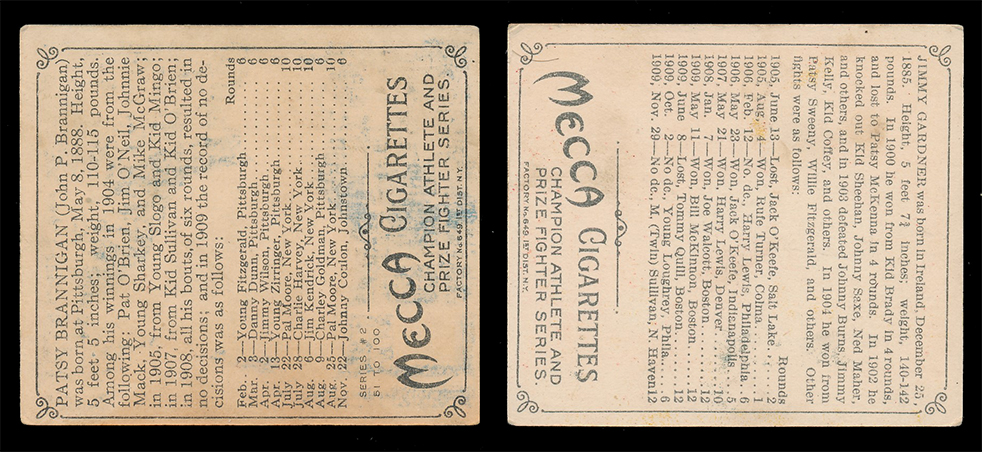 PATSY BRANNIGAN (John P. Brannigan)
was born at Pittsburgh, May 8, 1888. Height,
5 feet 5 inches; weight, 110-115 pounds.
Among his winnings in 1904 were from the
following: Pat O'Brien, Jim O'Neil, Johnnie
Mack, Young Sharkey and Mike McGraw;
in 1905, from Young Slogo and Kid Mingo;
in 1907, from Kid Sullivan and Kid O'Brien;
in 1908, all his bouts, of six rounds, resulted in
no decisions; and in 1909 the record of no de-
cisions was as follows:
Rounds
Feb. 2—Young Fitzgerald, Pittsburgh 6
Mar. 3—Danny Dunn, Pittsburgh 6
Apr. 2—Jimmy Wilson, Pittsburgh 6
Apr. 13—Young Zirringer, Pittsburgh 6
July 22—Pal Moore, New York 10
July 28—Charlie Harvey, New York 10
Aug. 6—Jim Kendrick, New York 10
Aug. 9—Charley Goldman, Pittsburgh 6
Aug. 25—Pal Moore, New York 10
Nov. 22—Johnny Conlon, Johnstown 6
SERIES #2
51 TO 100
MECCA CIGARETTES
CHAMPION ATHLETE AND
PRIZE FIGHTER SERIES.
FACTORY No. 649. 1ST DIST. N.Y.
JIMMY GARDNER was born in Ireland, December 25,
1885. Height, 5 feet 7¾ inches; weight, 140-142
pounds. In 1900 he won from Kid Brady in 4 rounds,
and lost to Patsy McKenna in 4 rounds. In 1902 he
knocked out Kid Sheehan, Johnny Saxe, Ned Maher,
and others, and in 1903 defeated Johnny Burns, Jimmy
Kelly, Kid Coffey, and others. In 1904 he won from
Patsy Sweeny, Willie Fitzgerald, and others. Other
fights were as follows:
Rounds
1905, June 13—Lost, Jack O'Keefe, Salt Lake 2
1905, Aug. 4—Won, Rufe Turner, Colma 1
1906, Feb. 12—No. dc., Harry Lewis, Philadelphia 6
1906, May 23—Won, Jack O'Keefe, Indianapolis 5
1907, May 21—Won, Harry Lewis, Denver 10
1908, Jan. 7—Won, Joe Walcott, Boston 12
1909, May 11—Won, Bill McKinnon, Boston 12
1909, June 8—Lost, Tommy Quill, Boston 12
1909, Oct. 2—No dc., Young Loughrey, Phila. 6
1909, Nov. 29—No dc., M. (Twin) Sullivan, N. Haven 12
MECCA CIGARETTES
CHAMPION ATHLETE AND
PRIZE FIGHTER SERIES.
FACTORY No. 649. 1ST DIST. N.Y.